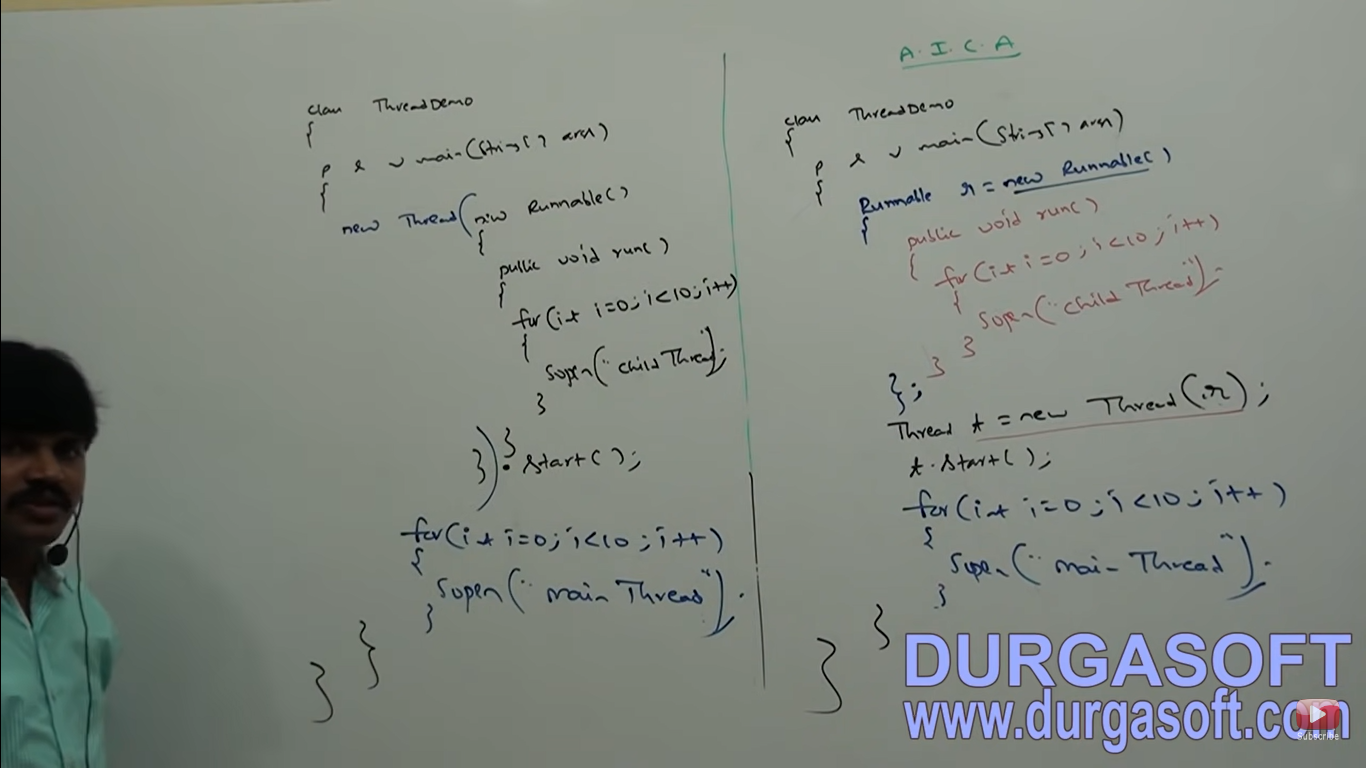 class ThreadDemo
{
p s v main(String[] args)
{
new Thread(new Runnable()
{
public void run()
{
for(int i=0; i<10; i++)
{
Sopln("child Thread");
}
}
}).start();
for(int i=0; i<10; i++)
{
Sopln("main Thread");
}
}
}
A.I.C.A
class ThreadDemo
{
p s v main(String[] args)
{
Runnable r = new Runnable()
{
public void run()
{
for(int i=0; i<10; i++)
{
Sopln("child Thread");
}
}
};
Thread t = new Thread(r);
t.start();
for(int i=0; i<10; i++)
{
Sopln("main Thread");
}
}
}
DURGASOFT
www.durgasoft.com
Subscribe